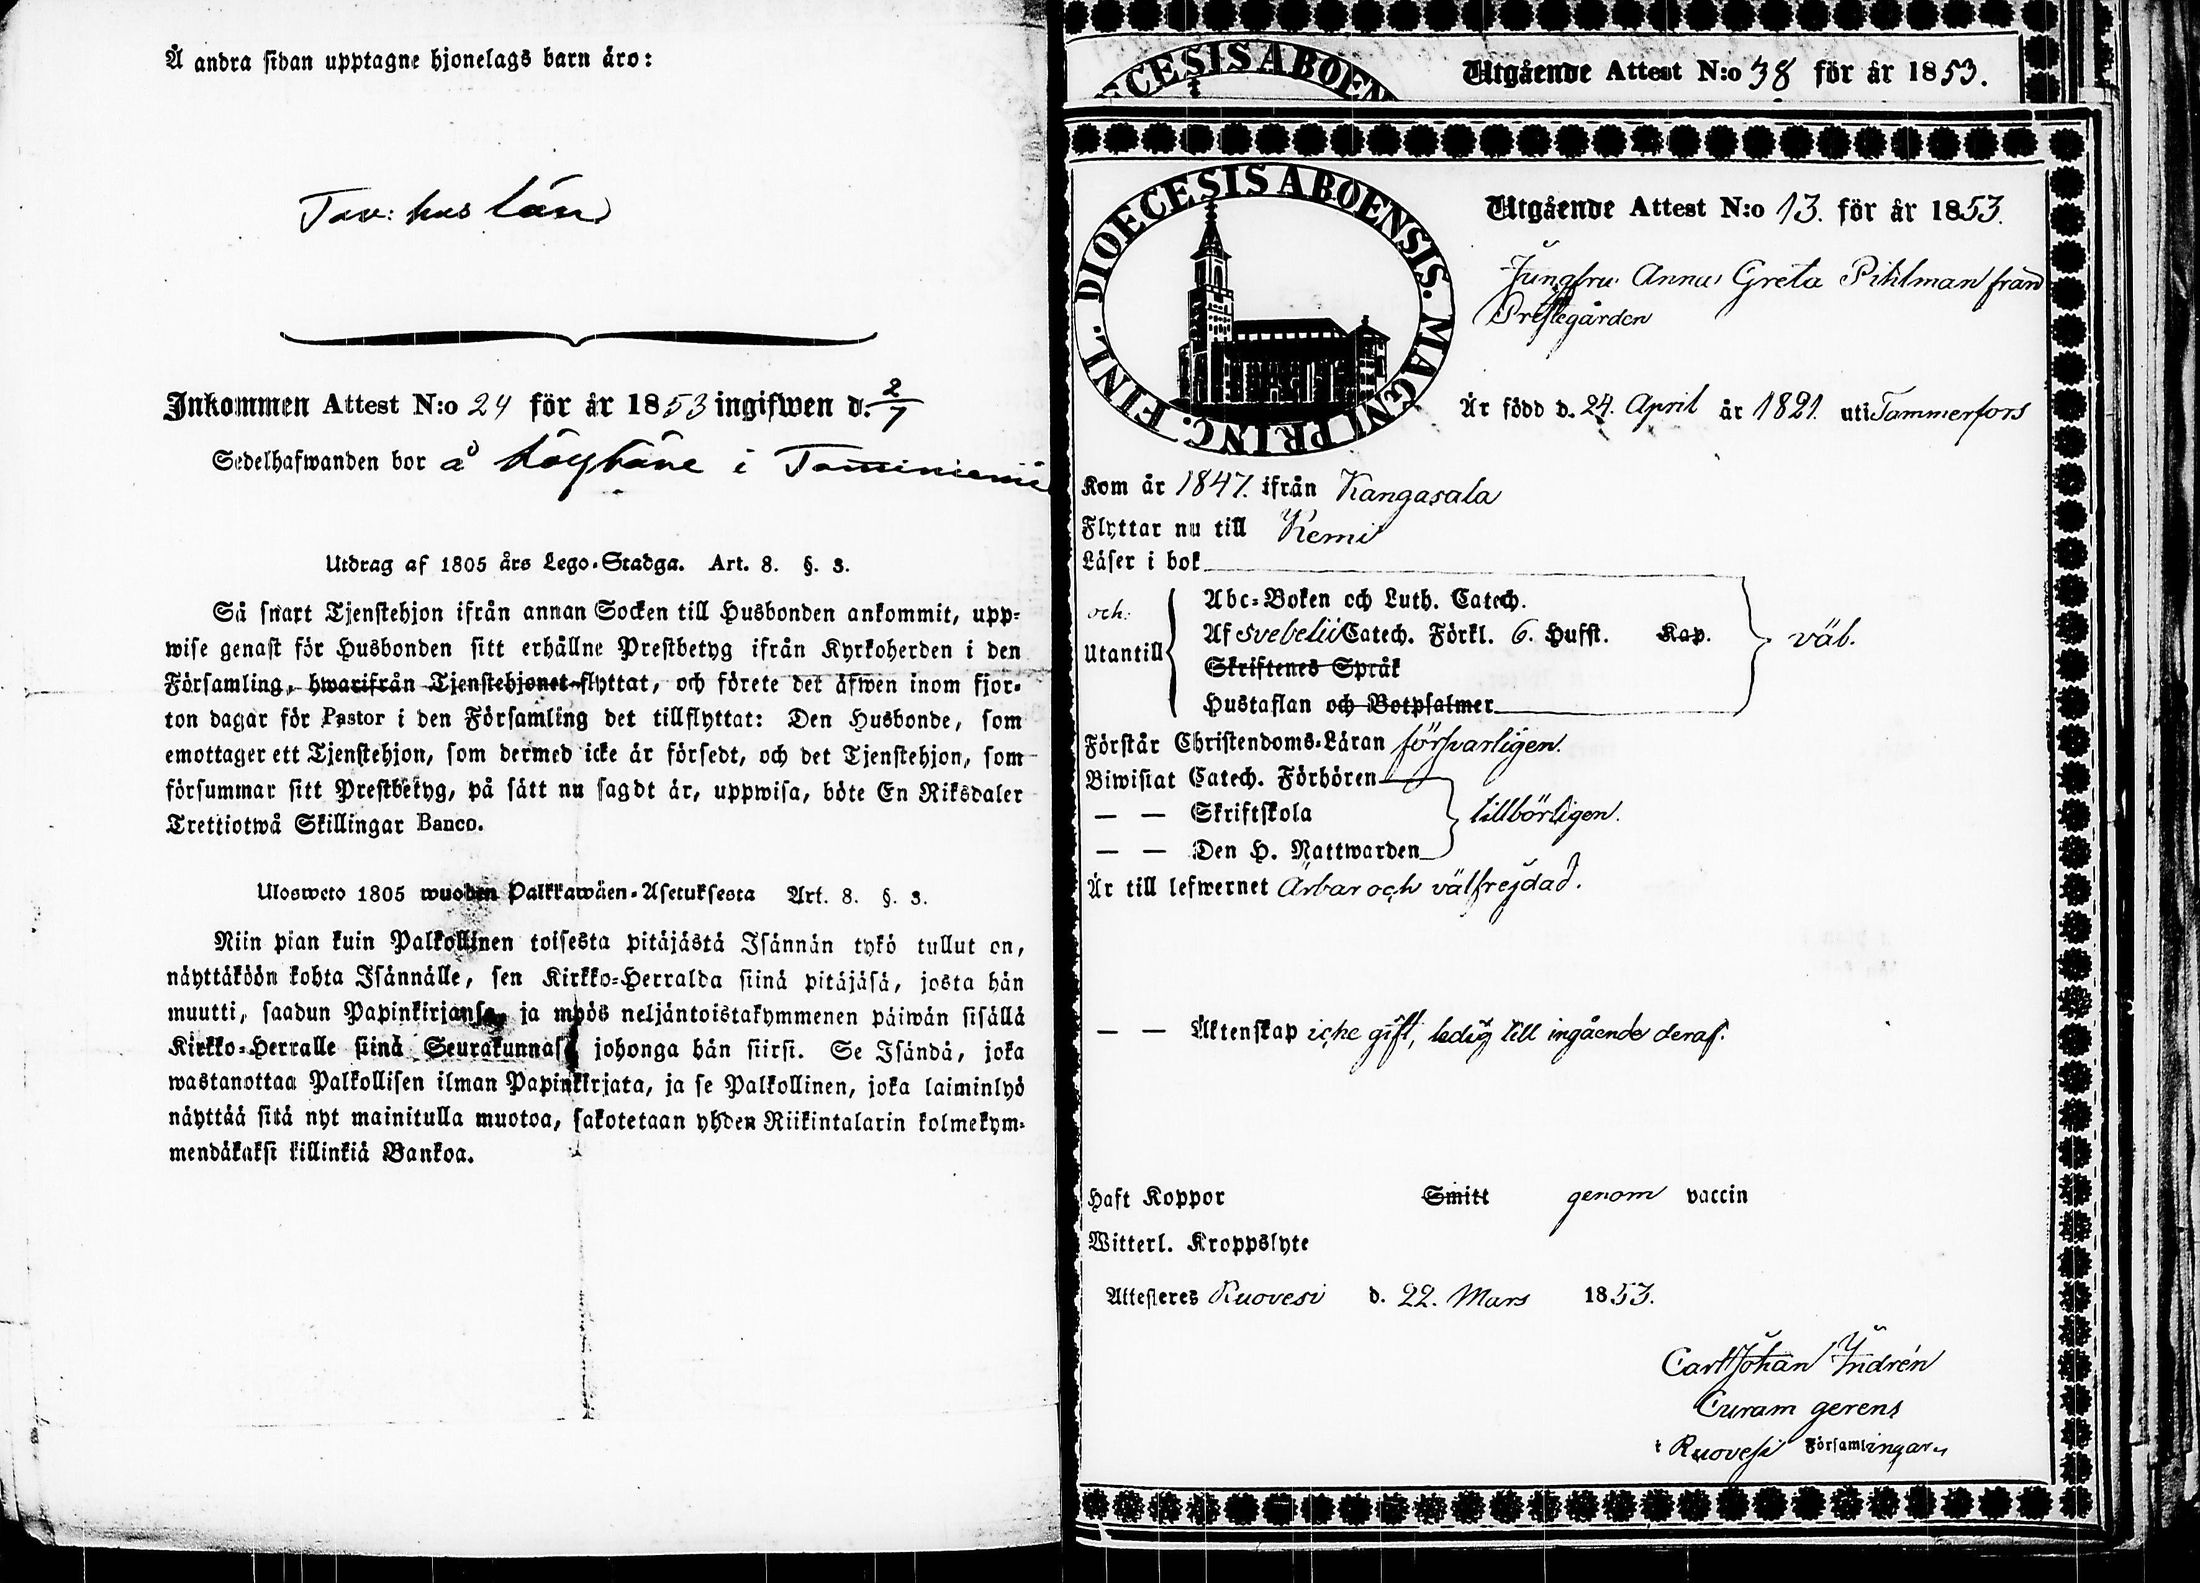 Å andra sidan upptagne hjonelags barn äro:
Tav: hus län
Inkommen Attest N:o 24 för år 1853 ingifwen d. 2/7
Sedelhafwanden bor å i
Utdrag af 1805 års Lego-Stadga. Art. 8. §. 3.
Så snart Tjenstehjon ifrån annan Socken till Husbonden ankommit, upp-
wise genast för Husbonden sitt erhållne Prestbetyg ifrån Kyrkoherden i den
Församling, hwarifrån Tjenstehjonet flyttat, och förete det äfwen inom fjor-
ton dagar för Pastor i den Församling det tillflyttat: Den Husbonde, som
emottager ett Tjenstehjon, som dermed icke är försedt, och det Tjenstehjon, som
försummar sitt Prestbetyg, på sätt nu sagdt är, uppwisa, böte En Riksdaler
Trettiotwå Skillingar Banco.
Ulosweto 1805 wuoden Palkkawäen-Asetuksesta Art. 8. §. 3.
Niin pian kuin Palkollinen toisesta pitäjästä Isännän tykö tullut on,
näyttäköön kohta Isännälle, sen Kirkko-Herralda siinä pitäjäsä, josta hän
muutti, saadun Papinkirjansa, ja myös neljäntoistakymmenen päiwän sisällä
Kirkko-Herralle siinä Seurakunnasa johonga hän siirsi. Se Isändä, joka
wastanottaa Palkollisen ilman Papinkirjata, ja se Palkollinen, joka laiminlyö
näyttää sitä nyt mainitulla muotoa, sakotetaan yhden Riikintalarin kolmekym-
mendäkaksi killinkiä Bankoa.
DIOECESIS ABOENSIS
Utgående Attest N:o 38 för år 1853.
DIOECESIS ABOENSIS. MAGNI PRINC. FINL.
Utgående Attest N:o 13. för år 1853.
Jungfru Anna Greta Pihlman från
Prestegården
Är född d. 24. April år 1821. uti Tammerfors
Kom år 1847. ifrån Kangasala
Flyttar nu till Kemi
Läser i bok
och
Utantill
Abc-Boken och Luth. Catech.
Af Svebelii Catech. Förkl. 6. Hufst. Kap.
Skriftenes Språk
Hustaflan och Botpsalmer
väl.
Förstår Christendoms-Läran försvarligen.
Biwistat Catech. Förhören
— — Skriftskola
— — Den H. Nattwarden
tillbörligen.
Är till lefwernet Ärbar och välfrejdad.
— — Äktenskap icke gift, ledig till ingående deraf.
Haft Koppor Smitt genom vaccin
Witterl. Kroppslyte
Attesteres Ruovesi d. 22. Mars 1853.
Carl Johan Indrén
Curam gerens
i Ruovesi Församlingar